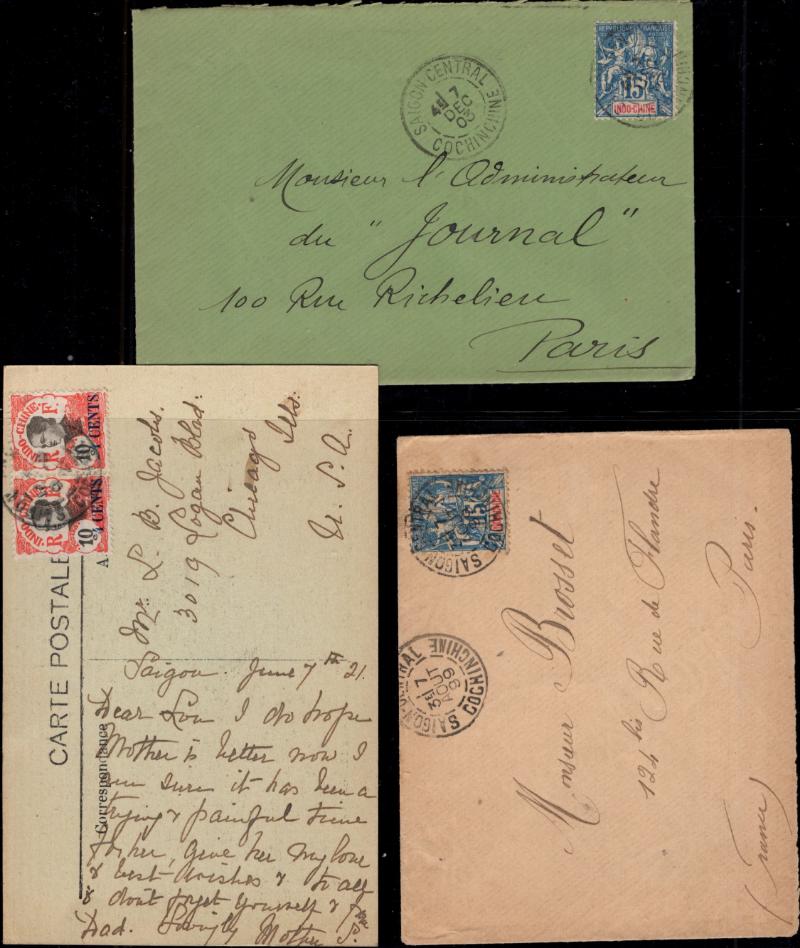 SAIGON CENTRAL
7
DEC
03
COCHINCHINE
REPUBLIQUE FRANÇAISE
15
INDO-CHINE
Monsieur l'Administrateur
du "Journal"
100 Rue Richelieu
Paris
INDO-CHINE
R F
10
4 CENTS
INDO-CHINE
R F
10
4 CENTS
CARTE POSTALE
Correspondance
Mr. L. B. Jacobs.
3019 Logan Blvd.
Chicago
Ills.
U. S. A.
Saigon June 7th 21.
Dear Lou I do hope
Mother is better now I
am sure it has been a
trying & painful time
for her, give her my love
& best wishes & to all
& don't forget yourself &
Dad. Lovingly Mother P.
15
INDO-CHINE
SAIGON CENTRAL
SAIGON-CENTRAL
7
AOUT
99
COCHINCHINE
Monsieur Brosset
124 bis Rue de Flandre
Paris.
(France)